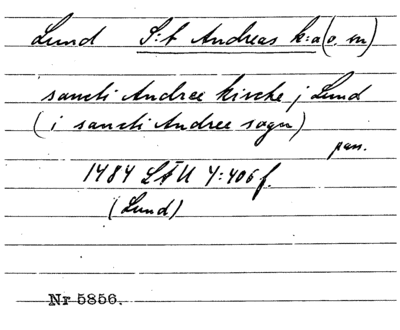 Lund S:t Andreas k:a (o. sn)
sancti Andree kirche j Lund
(i sancti Andree sogn)
pap.
1484 LÄU 4:406 f.
(Lund)
Nr 5856.